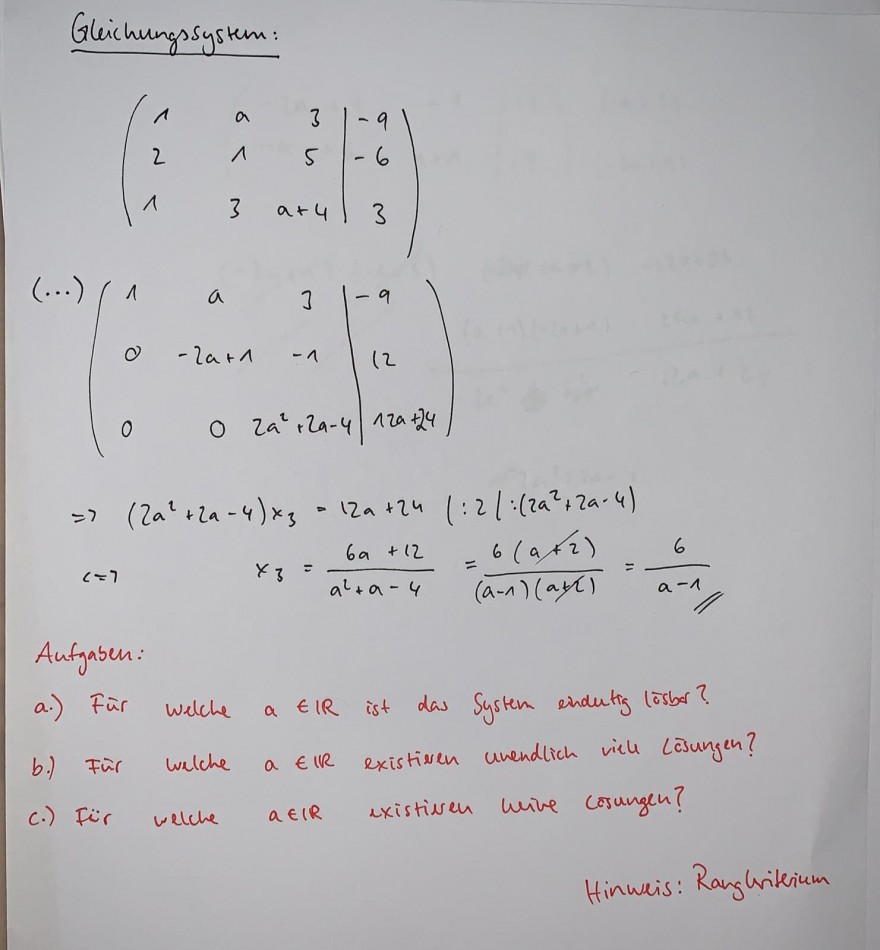 Gleichungssystem:
1 a 3 | -9
2 1 5 | -6
1 3 a+4 | 3
(...) 1 a 3 | -9
0 -2a+1 -1 | 12
0 0 2a²+2a-4 | 12a+24
=> (2a²+2a-4)x₃ = 12a+24 |:2 |:(2a²+2a-4)
<=> x₃ = (6a+12)/(a²+a-4) = 6(a+2)/((a-1)(a+2)) = 6/(a-1)
Aufgaben:
a.) Für welche a ∈ IR ist das System eindeutig lösbar?
b.) Für welche a ∈ IR existieren unendlich viele Lösungen?
c.) Für welche a ∈ IR existieren keine Lösungen?
Hinweis: Rangkriterium